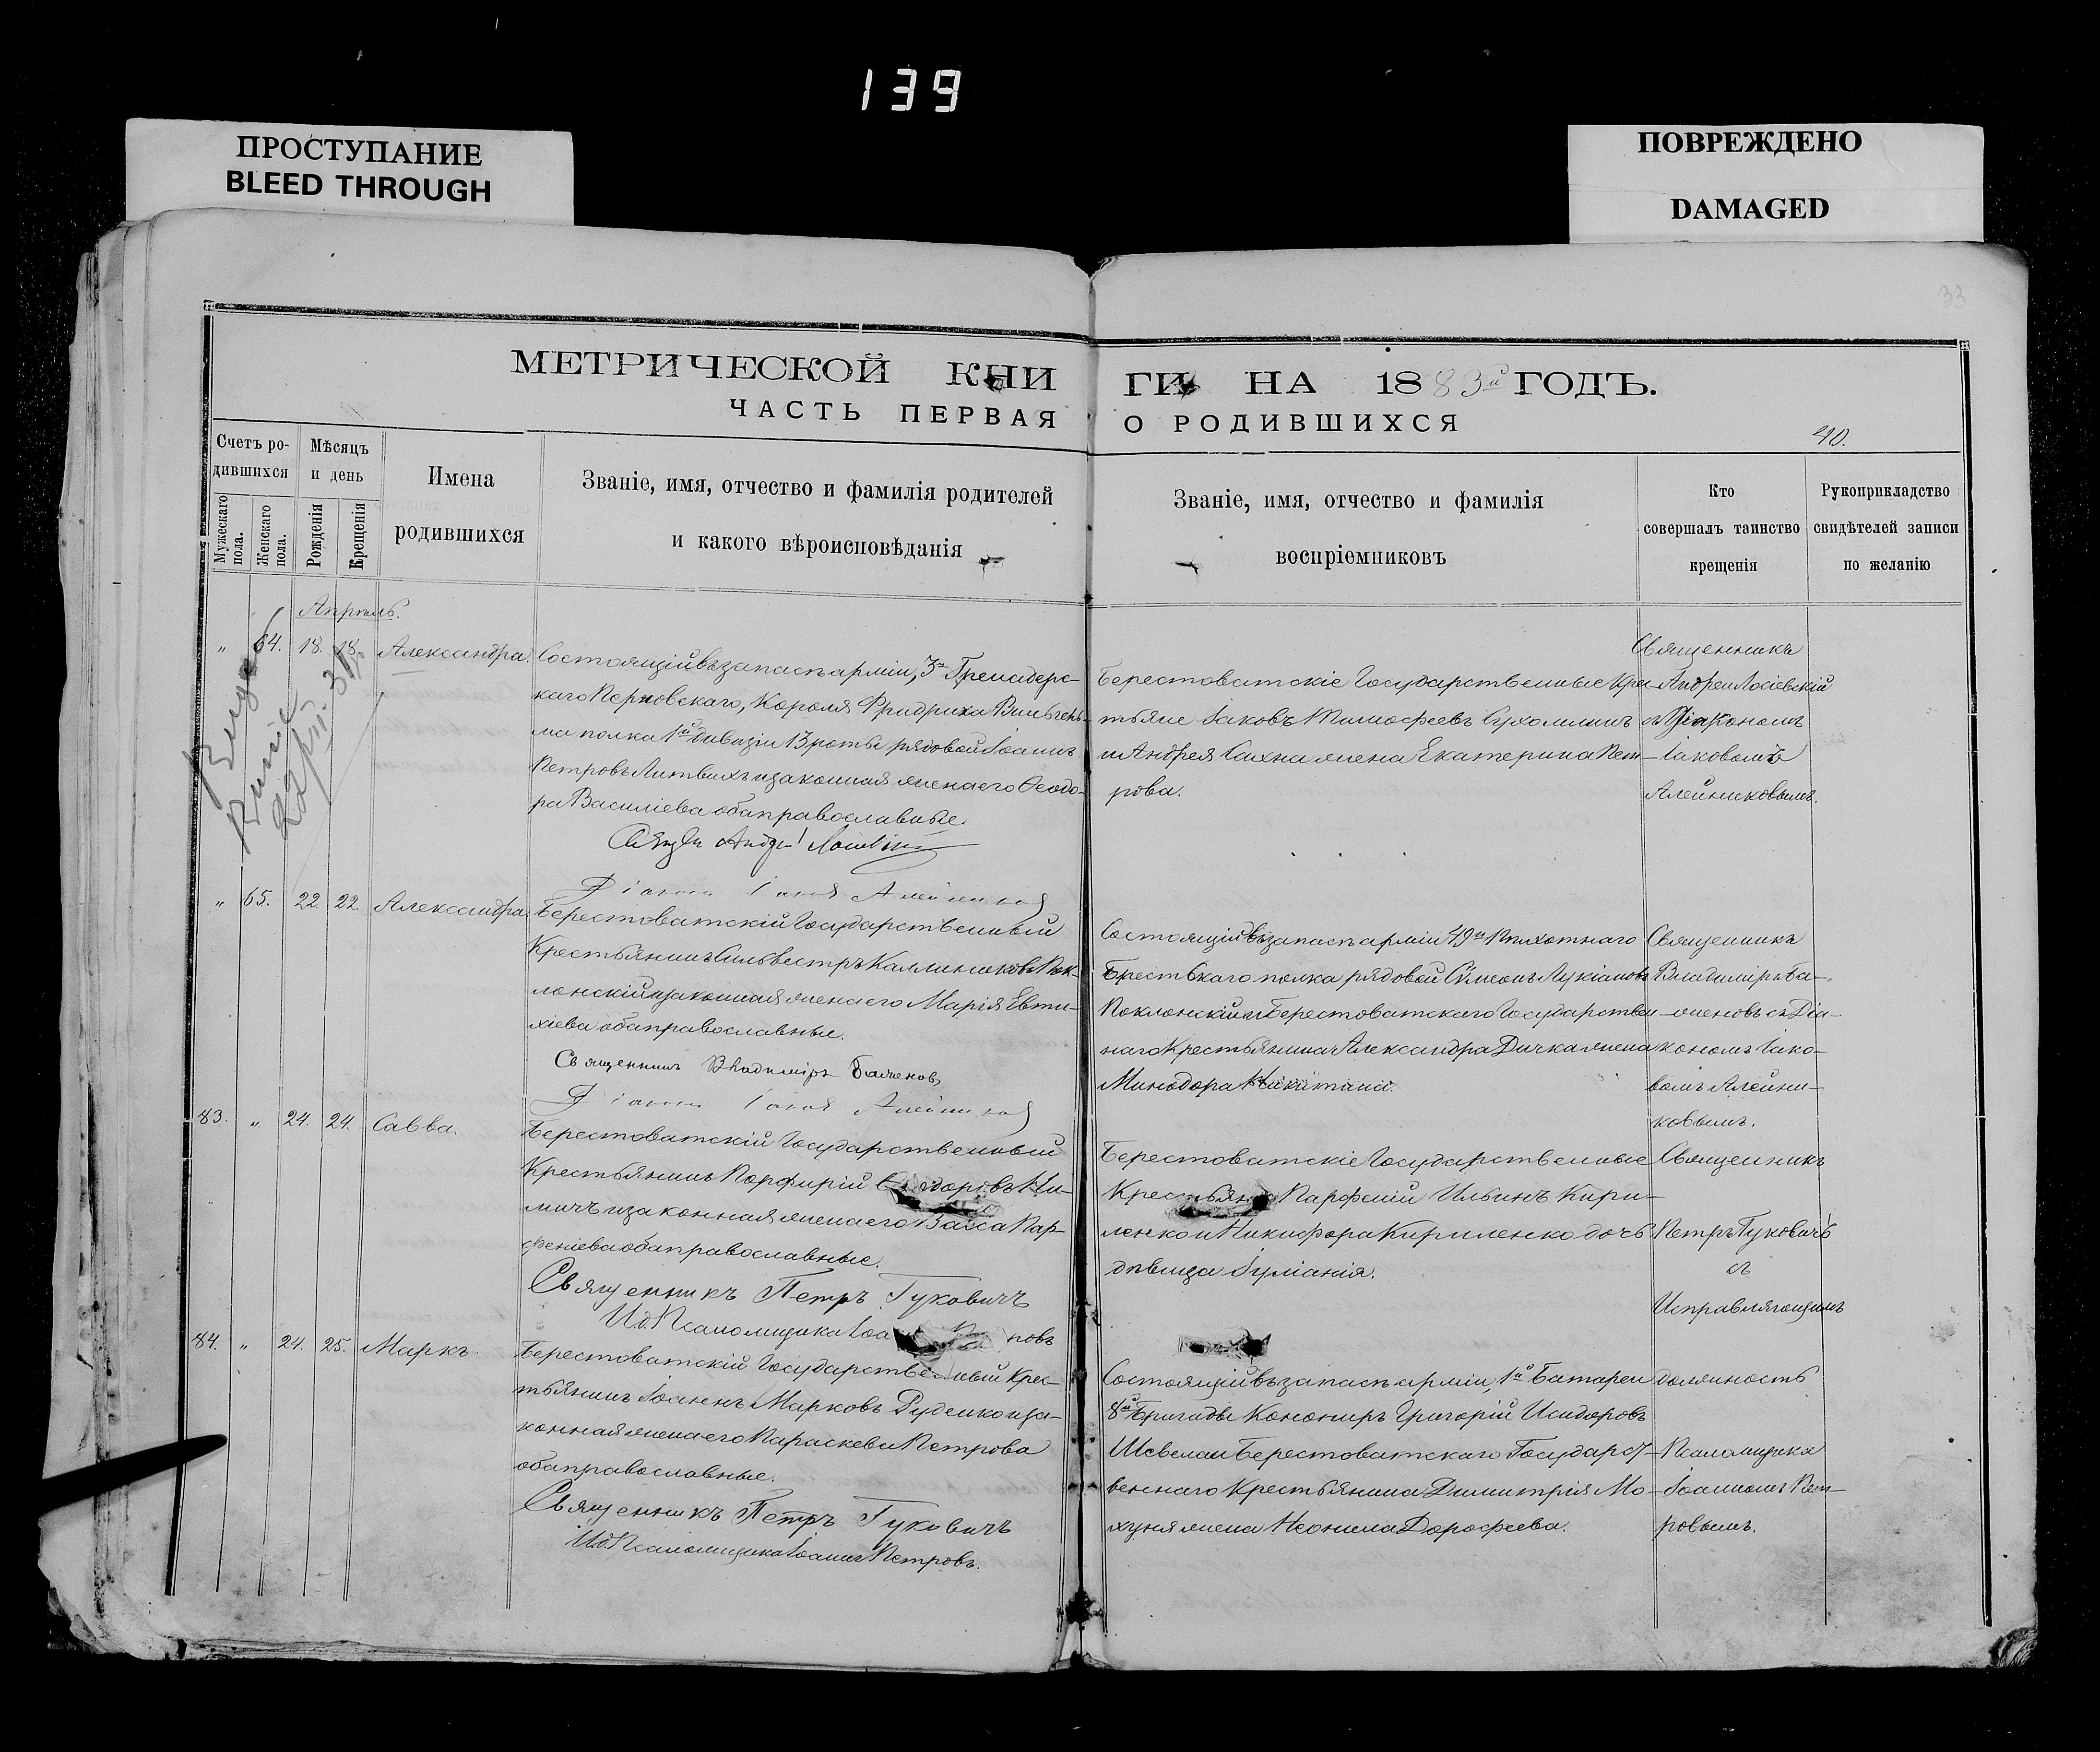 139
ПРОСТУПАНИЕ
BLEED THROUGH
ПОВРЕЖДЕНО
DAMAGED
33
МЕТРИЧЕСКОЙ КНИ
ГИ НА 1883й ГОДЪ.
ЧАСТЬ ПЕРВАЯ
О РОДИВШИХСЯ
40.
Счетъ ро-
дившихся
Мужескаго пола.
Женскаго пола.
Мѣсяцъ
и день
Рожденія
Крещенія
Имена
родившихся
Званіе, имя, отчество и фамилія родителей
и какого вѣроисповѣданія
Званіе, имя, отчество и фамилія
воспріемниковъ
Кто
совершалъ таинство
крещенія
Рукоприкладство
свидѣтелей записи
по желанію
Апрѣль.
" 64. 18. 18. Александра.
Состоящій въ запасѣ арміи, 3го Гренадерс-
каго Перновскаго, Короля Фридриха Вильгель-
ма полка 1й дивизіи 13 роты рядовой Іоаннъ
Петровъ Литвихъ и законная жена его Ѳеодо-
ра Василіева оба православные.
Берестоватскіе Государственные Крес
тьяне Іаковъ Тимофеевъ Сухомлинъ
и Андрея Сахна жена Екатерина Пет-
рова.
Священникъ
Андрей Лосіевскій
съ Діакономъ
Іаковомъ
Алейниковымъ.
" 65. 22. 22. Александра.
Берестоватскій Государственный
Крестьянинъ Сильвестръ Каллиниковъ Пок-
лонскій и законная жена его Марія Евти-
хіева оба православные.
Священникъ Владиміръ Баженовъ
Состоящій въ запасѣ арміи 49го Пѣхотнаго
Брестскаго полка рядовой Сѵмеонъ Лукіановъ
Поклонскій и Берестоватскаго Государствен-
наго Крестьянина Александра Дичка жена
Минодора Никитина.
Священникъ
Владиміръ Ба-
женовъ съ Діа-
кономъ Іако-
вомъ Алейни-
ковымъ.
83. " 24. 24. Савва.
Берестоватскій Государственный
Крестьянинъ Порфирій Ѳеодоровъ Кли-
мичъ и законная жена его Васса Пар-
феніева оба православные.
Священникъ Петръ Гуковичъ
И.д. Псаломщика Іоа новъ
Берестоватскіе Государственные
Крестьяне Парфеній Ильинъ Кири-
ленко и Никифора Кириленко дочь
дѣвица Іуліанія.
Священникъ
Петръ Гуковичъ
съ
Исправляющимъ
84. " 24. 25. Маркъ.
Берестоватскій Государственный Крес-
тьянинъ Іоаннъ Марковъ Руденко и за-
конная жена его Параскева Петрова
оба православные.
Священникъ Петръ Гуковичъ
И.д. Псаломщика Іоаннъ Петровъ.
Состоящій въ запасѣ арміи, 1й Батареи
8й Бригады Канониръ Григорій Исидоровъ
Шевелаи Берестоватскаго Государст-
веннаго Крестьянина Димитрія Мо-
хуня жена Неонила Дорофеева.
должность
Псаломщика
Іоанномъ Пет-
ровымъ.